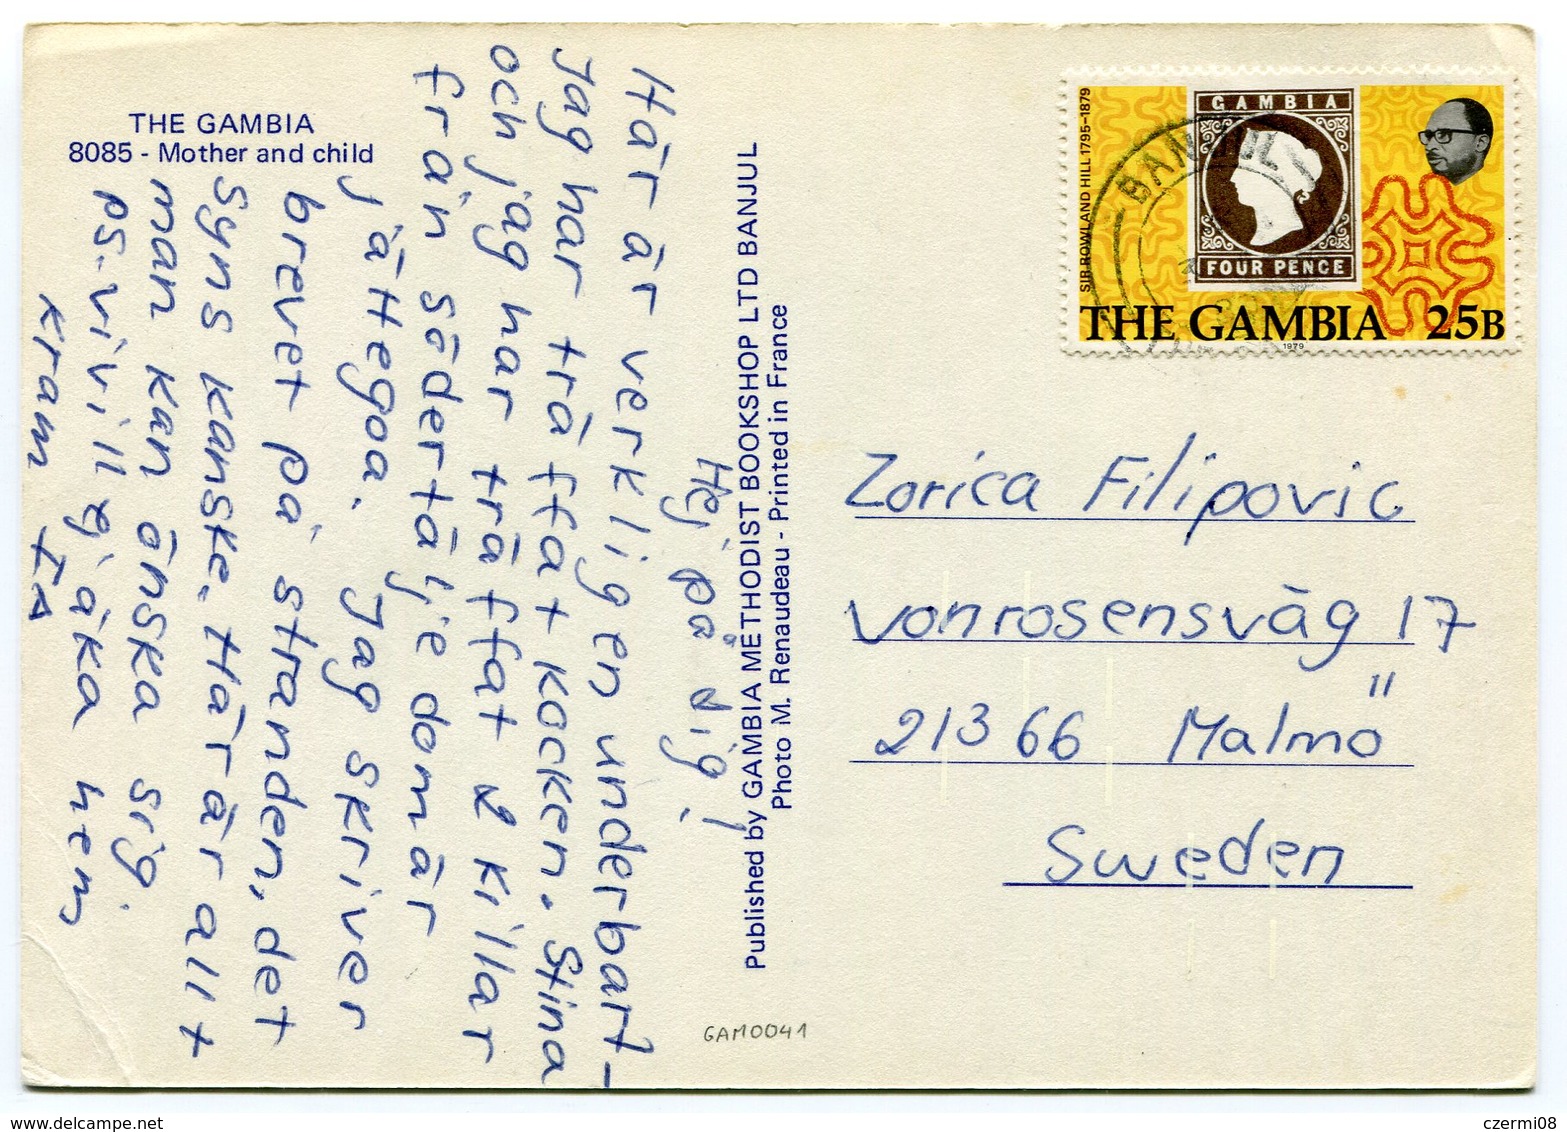 THE GAMBIA
8085 - Mother and child
Hej på dig!
Här är verkligen underbart-
Jag har träffat kocken. Stina
och jag har träffat 2 killar
från södertälje dom är
jättegoa. Jag skriver
brevet på stranden, det
syns kanske. Här är allt
man kan önska sig.
ps. vi vill ej åka hem
Kram IA
Published by GAMBIA METHODIST BOOKSHOP LTD BANJUL
Photo M. Renaudeau - Printed in France
GAM0041
SIR ROWLAND HILL 1795-1879
GAMBIA
FOUR PENCE
THE GAMBIA 25B
1979
BANJUL
Zorica Filipovic
vonrosensväg 17
213 66 Malmö
Sweden
www.delcampe.net
czermi08